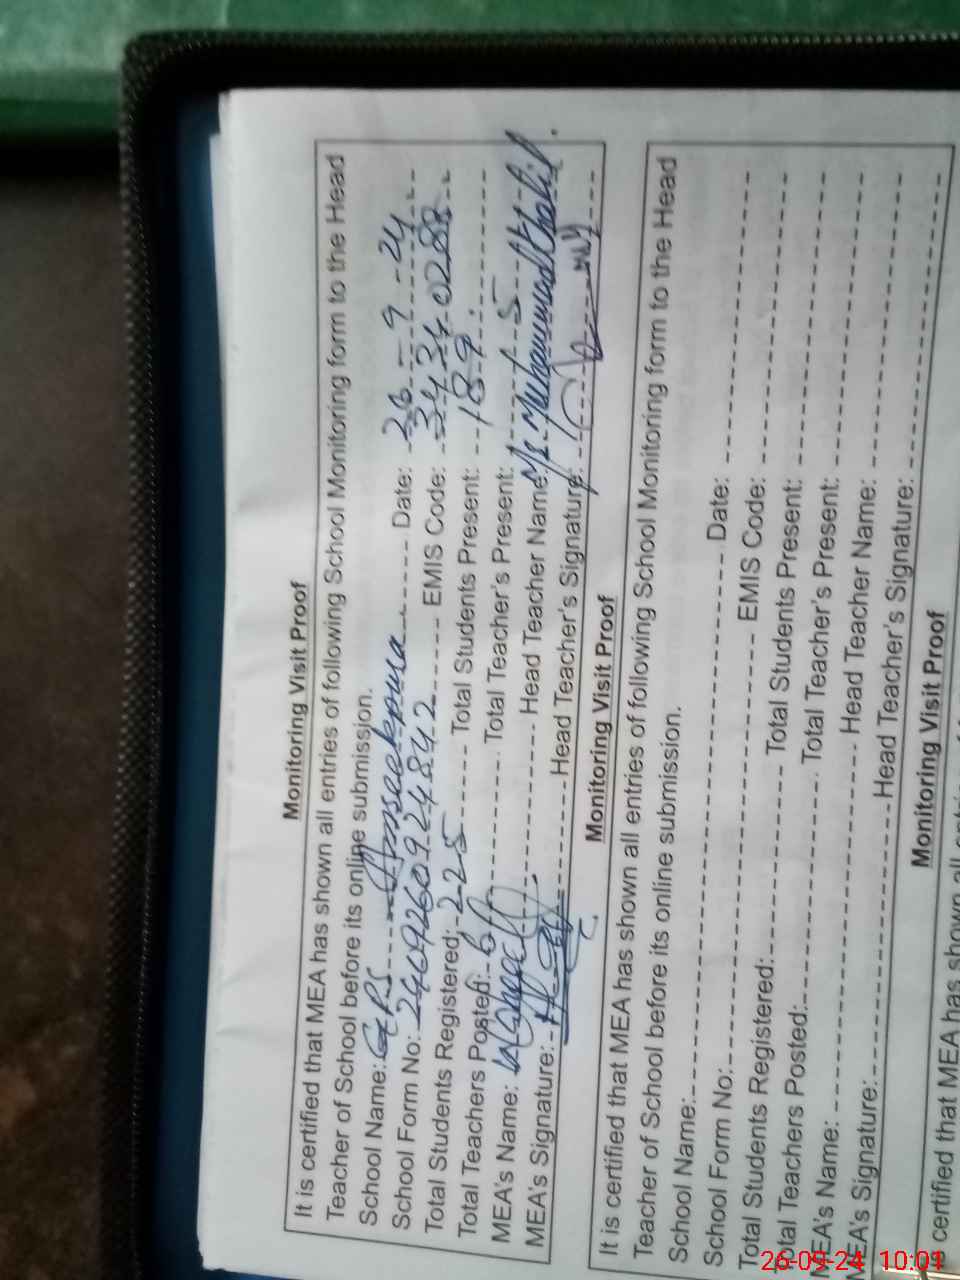 Monitoring Visit Proof
It is certified that MEA has shown all entries of following School Monitoring form to the Head
Teacher of School before its online submission.
School Name: GPS Date: 26-9-24
School Form No: 2409260924842 EMIS Code:
Total Students Registered: 225 Total Students Present: 189
Total Teachers Posted: 6 Total Teacher's Present: 5
MEA's Name: Head Teacher Name: Muhammad Khalil
MEA's Signature: Head Teacher's Signature:
Monitoring Visit Proof
It is certified that MEA has shown all entries of following School Monitoring form to the Head
Teacher of School before its online submission.
School Name: Date:
School Form No: EMIS Code:
Total Students Registered: Total Students Present:
Total Teachers Posted: Total Teacher's Present:
MEA's Name: Head Teacher Name:
MEA's Signature: Head Teacher's Signature:
Monitoring Visit Proof
certified that MEA has shown all
26-09-24 10:01